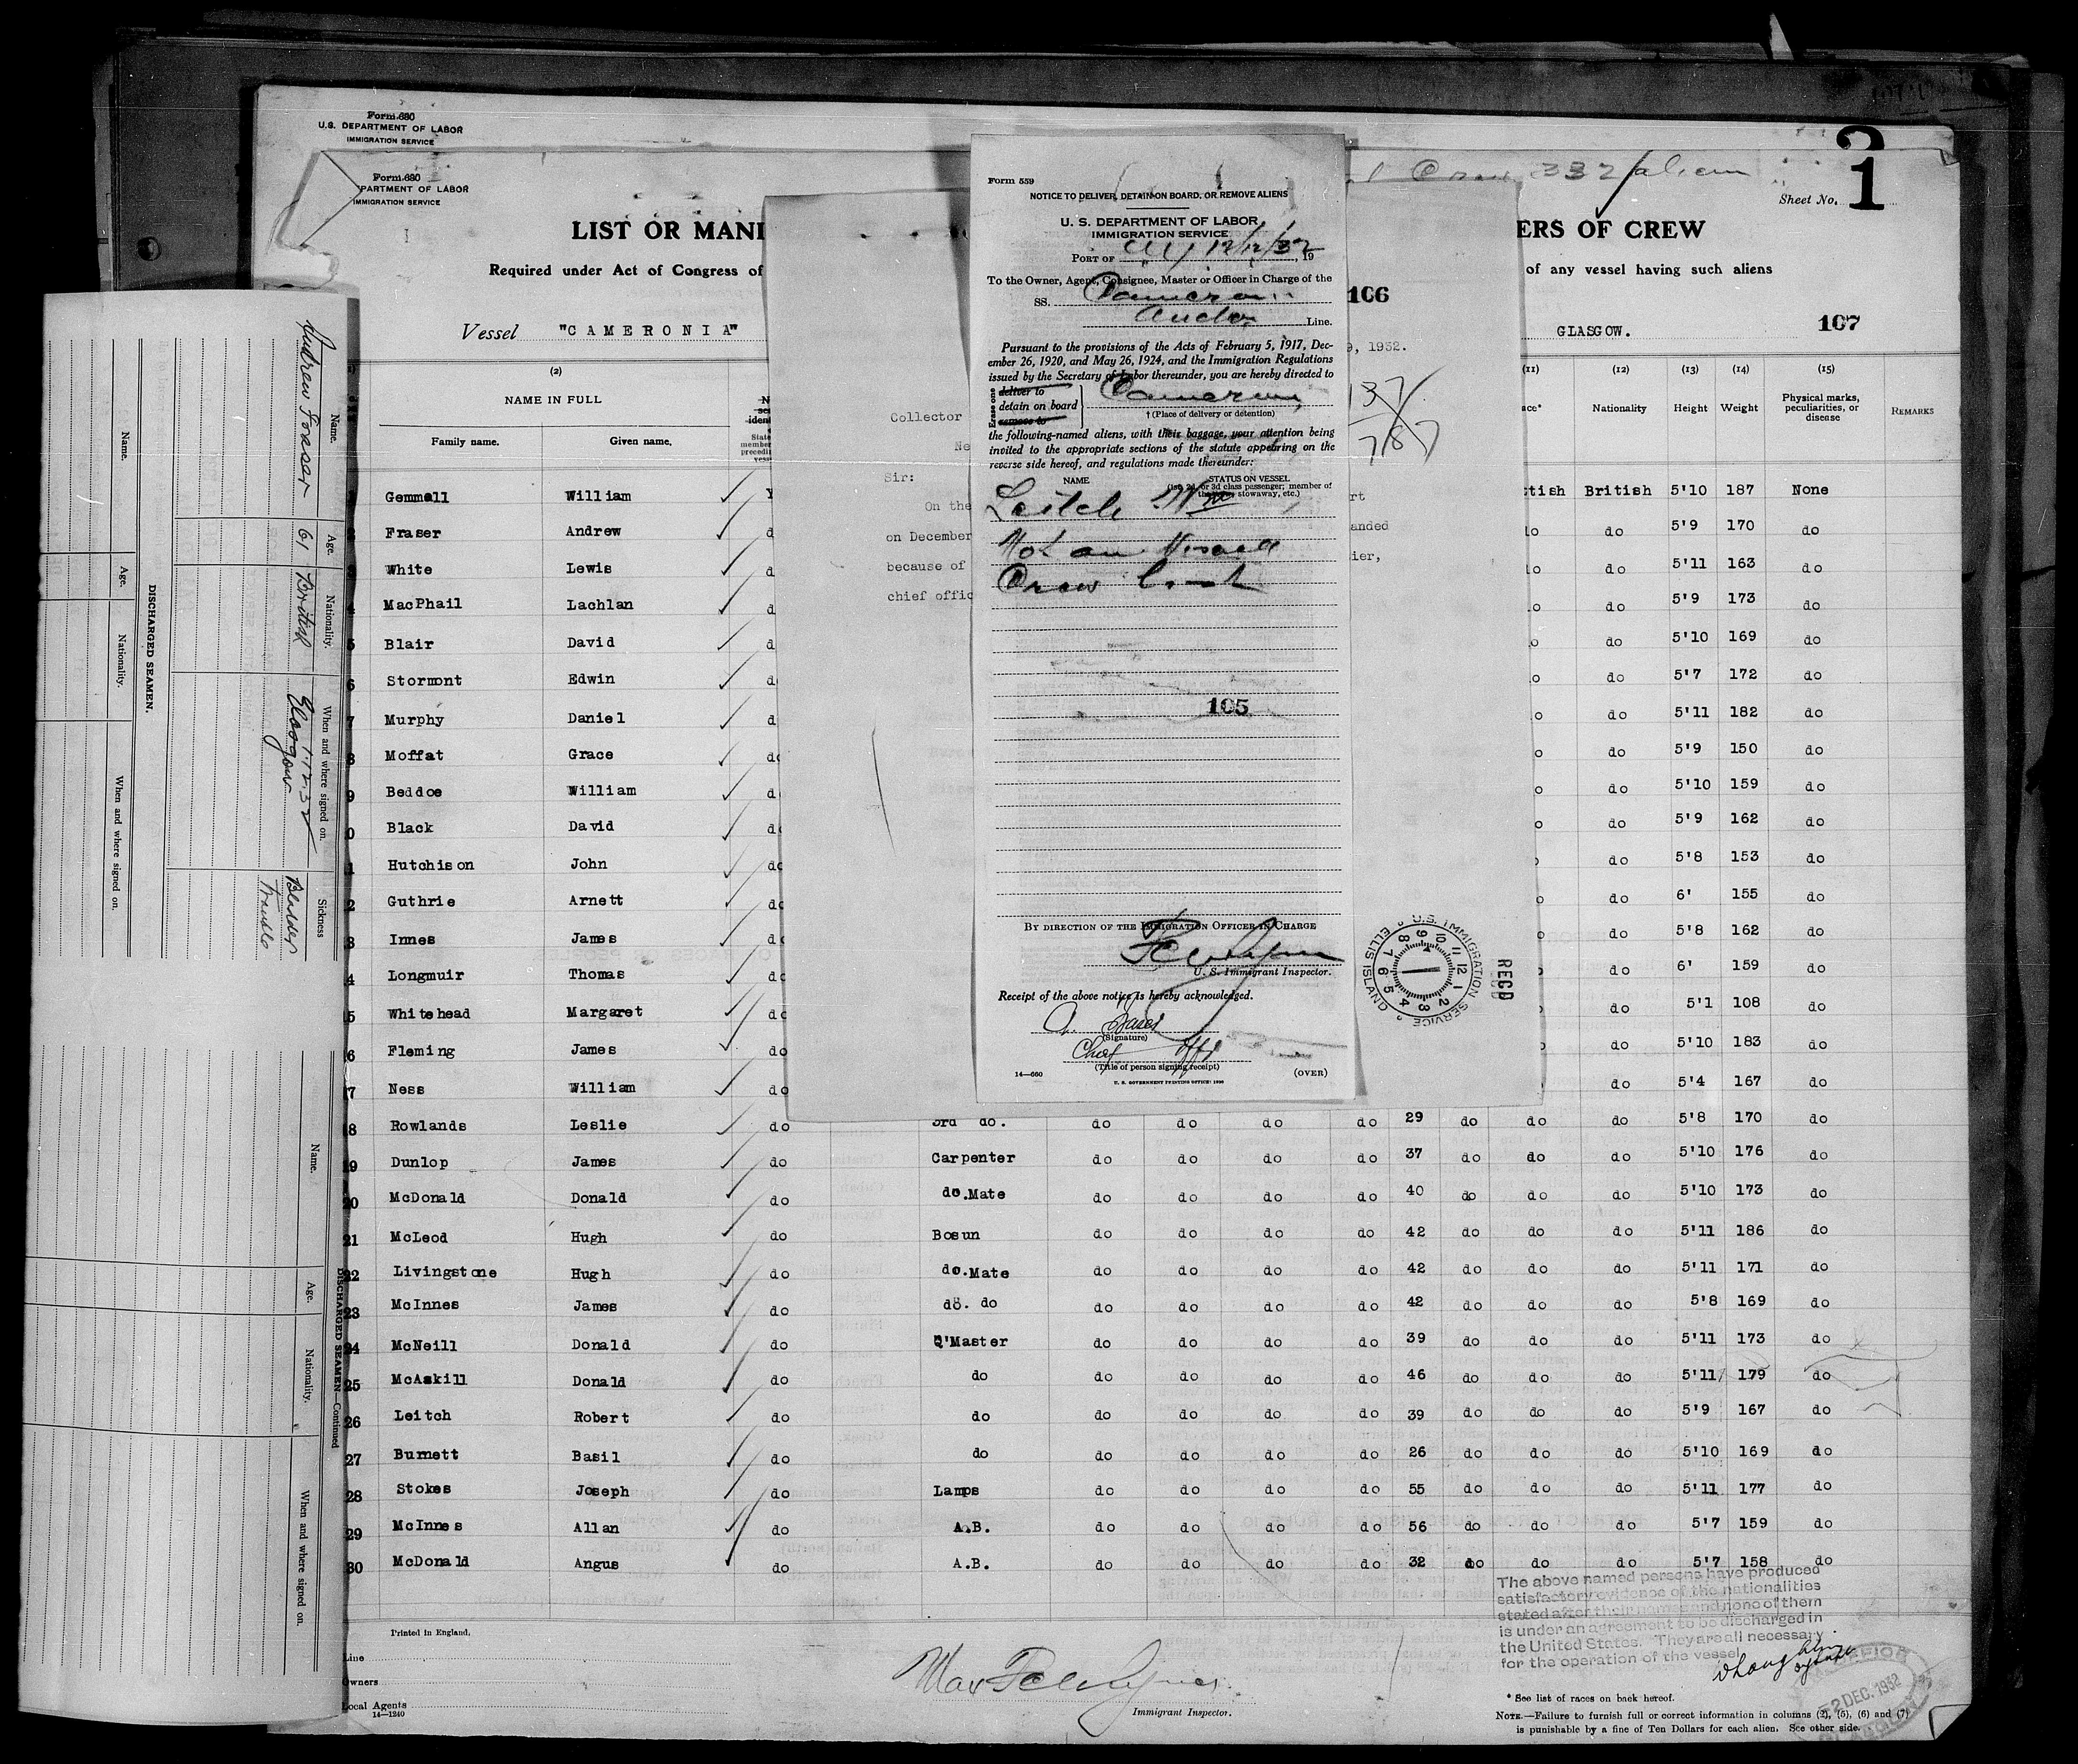 Form 680
U.S. DEPARTMENT OF LABOR
IMMIGRATION SERVICE
Form 680
PARTMENT OF LABOR
IMMIGRATION SERVICE
Crew 332 alien
Sheet No. 1
LIST OR MANI
ERS OF CREW
Required under Act of Congress of
of any vessel having such aliens
106
107
Vessel "CAMERONIA"
GLASGOW.
9, 1932.
137
787
Collector
Ne
Sir:
On the
on December
because of
chief offic
rt
anded
ier,
Form 559
NOTICE TO DELIVER, DETAIN ON BOARD, OR REMOVE ALIENS
U. S. DEPARTMENT OF LABOR
IMMIGRATION SERVICE
PORT OF 12/12/32, 19
To the Owner, Agent, Consignee, Master or Officer in Charge of the
SS. Cameronia
Anchor Line.
Pursuant to the provisions of the Acts of February 5, 1917, Dec-
ember 26, 1920, and May 26, 1924, and the Immigration Regulations
issued by the Secretary of Labor thereunder, you are hereby directed to
Erase one
deliver to
detain on board
remove to
Cameronia
† (Place of delivery or detention)
the following-named aliens, with their baggage, your attention being
invited to the appropriate sections of the statute appearing on the
reverse side hereof, and regulations made thereunder:
NAME
STATUS ON VESSEL
(1st, 2d, or 3d class passenger; member of
the crew, stowaway, etc.)
Leitch Wm
Not on Vessel
Crew
105
BY DIRECTION OF THE IMMIGRATION OFFICER IN CHARGE
U. S. Immigrant Inspector.
Receipt of the above notice is hereby acknowledged.
(Signature)
Chief Offr
(Title of person signing receipt)
14—660
(OVER)
U. S. GOVERNMENT PRINTING OFFICE: 1930
U.S. IMMIGRATION SERVICE
ELLIS ISLAND
RECD
(2) (11) (12) (13) (14) (15)
NAME IN FULL
Family name. Given name.
Nationality Height Weight Physical marks, peculiarities, or disease REMARKS
Gemmell William ttish British 5'10 187 None
Fraser Andrew do 5'9 170 do
White Lewis do 5'11 163 do
MacPhail Lachlan do 5'9 173 do
5 Blair David do 5'10 169 do
6 Stormont Edwin do 5'7 172 do
7 Murphy Daniel do 5'11 182 do
8 Moffat Grace do 5'9 150 do
9 Beddoe William do 5'10 159 do
0 Black David do 5'9 162 do
1 Hutchison John do do 5'8 153 do
2 Guthrie Arnett do do 6' 155 do
3 Innes James do do 5'8 162 do
4 Longmuir Thomas do do 6' 159 do
5 Whitehead Margaret do do 5'1 108 do
6 Fleming James do do 5'10 183 do
7 Ness William do do 5'4 167 do
18 Rowlands Leslie do 3rd do. do do do do 29 do do do 5'8 170 do
19 Dunlop James do Carpenter do do do do 37 do do do 5'10 176 do
20 McDonald Donald do do.Mate do do do do 40 do do do 5'10 173 do
21 McLeod Hugh do Bosun do do do do 42 do do do 5'11 186 do
22 Livingstone Hugh do do.Mate do do do do 42 do do do 5'11 171 do
23 McInnes James do do. do do do do do 42 do do do 5'8 169 do
24 McNeill Donald do Q'Master do do do do 39 do do do 5'11 173 do
25 McAskill Donald do do do do do do 46 do do do 5'11 179 do
26 Leitch Robert do do do do do do 39 do do do 5'9 167 do
27 Burnett Basil do do do do do do 26 do do do 5'10 169 do
28 Stokes Joseph do Lamps do do do do 55 do do do 5'11 177 do
29 McInnes Allan do A.B. do do do do 56 do do do 5'7 159 do
30 McDonald Angus do A.B. do do do do 32 do do do 5'7 158 do
The above named persons have produced
satisfactory evidence of the nationalities
stated after their names and none of them
is under an agreement to be discharged in
the United States. They are all necessary
for the operation of the vessel
Printed in England.
Line
Owners
Local Agents
14—1240
Immigrant Inspector.
2 DEC. 1932
* See list of races on back hereof.
NOTE.—Failure to furnish full or correct information in columns (2), (5), (6) and (7)
is punishable by a fine of Ten Dollars for each alien. See other side.
DISCHARGED SEAMEN.
Name. Age. Nationality. When and where signed on. Sickness
Andrew Fraser 61 British 1.12.32 Glasgow Bladder Trouble
Name. Age. Nationality. When and where signed on.
DISCHARGED SEAMEN—Continued
Name. Age. Nationality. When and where signed on.